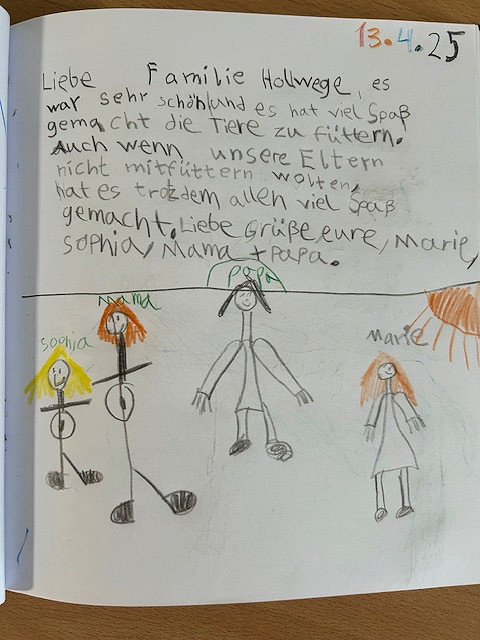 13.4.25
Liebe Familie Hollwege, es
war sehr schön und es hat viel Spaß
gemacht die Tiere zu füttern.
Auch wenn unsere Eltern
nicht mitfüttern wolten,
hat es trotzdem allen viel Spaß
gemacht. Liebe Grüße, eure, Marie,
sophia, Mama + Papa.
papa
mama
sophia
marie